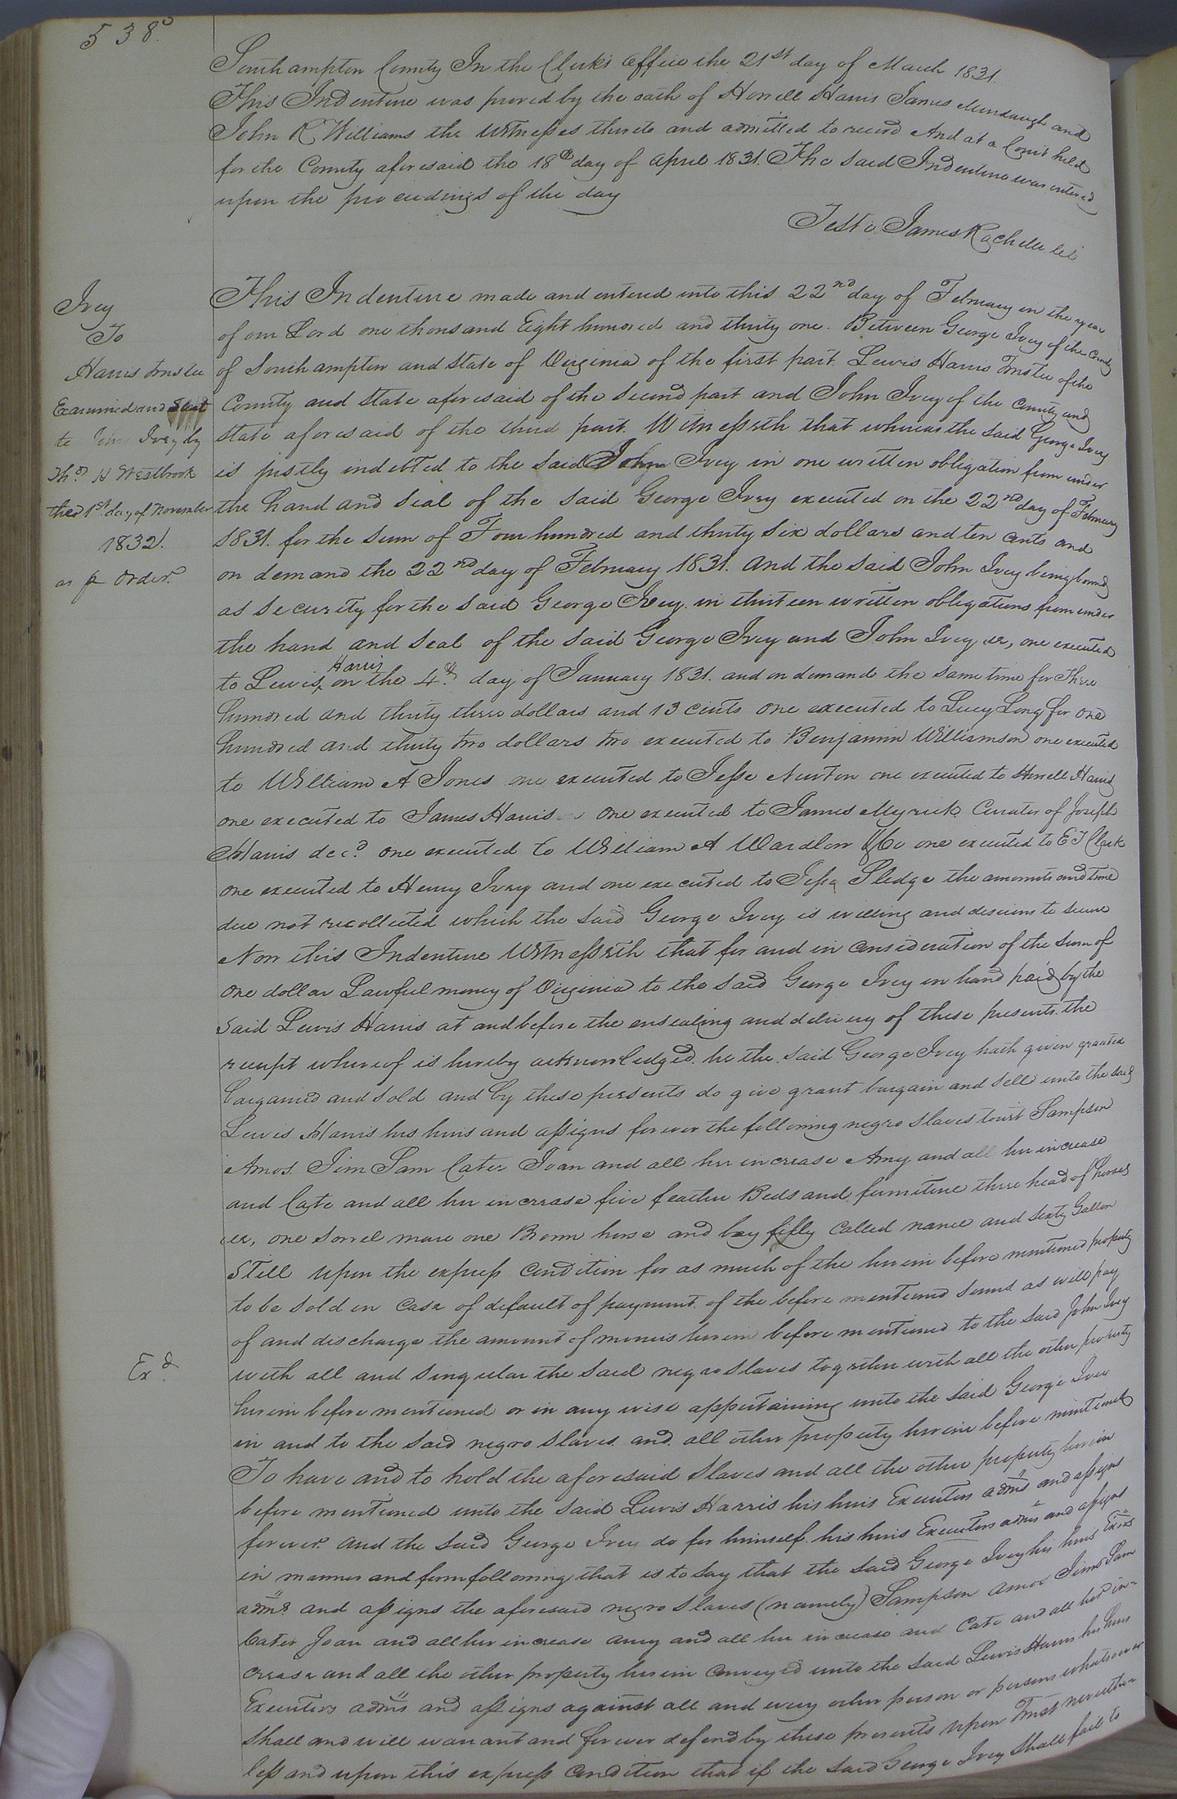 538
Southampton County In the Clerk's Office the 21st day of March 1831
This Indenture was proved by the oath of Howell Harris James Murdaugh and
John R. Williams the Witnesses thereto and admitted to record And at a Court held
for the County aforesaid the 18th day of April 1831. The said Indenture was entered
upon the proceedings of the day
Teste James Rochelle
Ivey
To
Harris trustee
Examined and sent
to John Ivey by
Thos. H Westbrook
the 1st day of November
1832.
as p order
This Indenture made and entered into this 22nd day of February in the year
of our Lord one thousand Eight hundred and thirty one. Between George Ivey of the County
of Southampton and State of Virginia of the first part Lewis Harris Trustee of the
County and State aforesaid of the second part and John Ivey of the county and
state aforesaid of the third part. Witnesseth that whereas the said George Ivey
is justly indebted to the said John Ivey in one written obligation from under
the hand and seal of the said George Ivey executed on the 22nd day of February
1831. for the sum of Four hundred and thirty six dollars and ten cents and
on demand the 22nd day of February 1831. And the said John Ivey being bound
as security for the said George Ivey in thirteen written obligations from under
the hand and seal of the said George Ivey and John Ivey, one executed
to Lewis Harris on the 4th day of January 1831. and on demand the same time for Three
hundred and thirty three dollars and 13 cents one executed to Lucy Long for one
hundred and thirty two dollars two executed to Benjamin Williamson one executed
to William A Jones one executed to Jesse Newton one executed to Howell Harris
one executed to James Harris one executed to James Myrick Curator of Joseph
Harris decd. one executed to William A Wardlow & Co one executed to E T Clark
one executed to Henry Ivey and one executed to Jesse Pledge the amounts and time
due not recollected which the said George Ivey is willing and desirous to secure
Now this Indenture Witnesseth that for and in consideration of the sum of
one dollar Lawful money of Virginia to the said George Ivey in hand paid by the
said Lewis Harris at and before the ensealing and delivery of these presents the
receipt whereof is hereby acknowledged. he the said George Ivey hath given granted
bargained and sold and by these presents do give grant bargain and sell unto the said
Lewis Harris his heirs and assigns forever the following negro slaves towit Sampson
Amos. Jim Sam Cater Joan and all her increase Amy and all her increase
and Cate and all her increase five feather Beds and furniture three head of horses
one sorrel mare one Brown horse and bay filly called nance and sixty Gallon
Still upon the express condition for as much of the herein before mentioned property
to be sold in case of default of payment of the before mentioned sums as will pay
of and discharge the amount of monies herein before mentioned to the said John Ivey
with all and singular the said negro slaves together with all the other property
herein before mentioned or in any wise appertaining unto the said George Ivey
in and to the said negro slaves and all other property herein before mentioned
Exd.
To have and to hold the aforesaid slaves and all the other property herein
before mentioned unto the said Lewis Harris his heirs Executors admrs and assigns
forever. And the said George Ivey do for himself his heirs Executors admrs and assigns
in manner and form following that is to say that the said George Ivey his heirs Exors
admrs and assigns the aforesaid negro slaves (namely) Sampson Amos Jim Sam
Cater Joan and all her increase Amy and all her increase and Cate and all her in-
crease and all the other property herein conveyed unto the said Lewis Harris his heirs
Executors admrs and assigns against all and every other person or persons whatsoever
shall and will warrant and forever defend by these presents Upon Trust neverthe-
less and upon this express condition that if the said George Ivey shall fail to